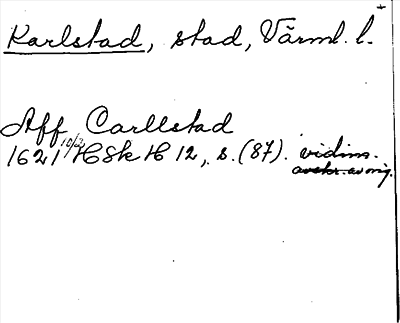 Karlstad, stad, Värml. l. +
Aff Carllstad
1621 10/2 HSk H 12, s. (87). vidim.
avskr. av orig.